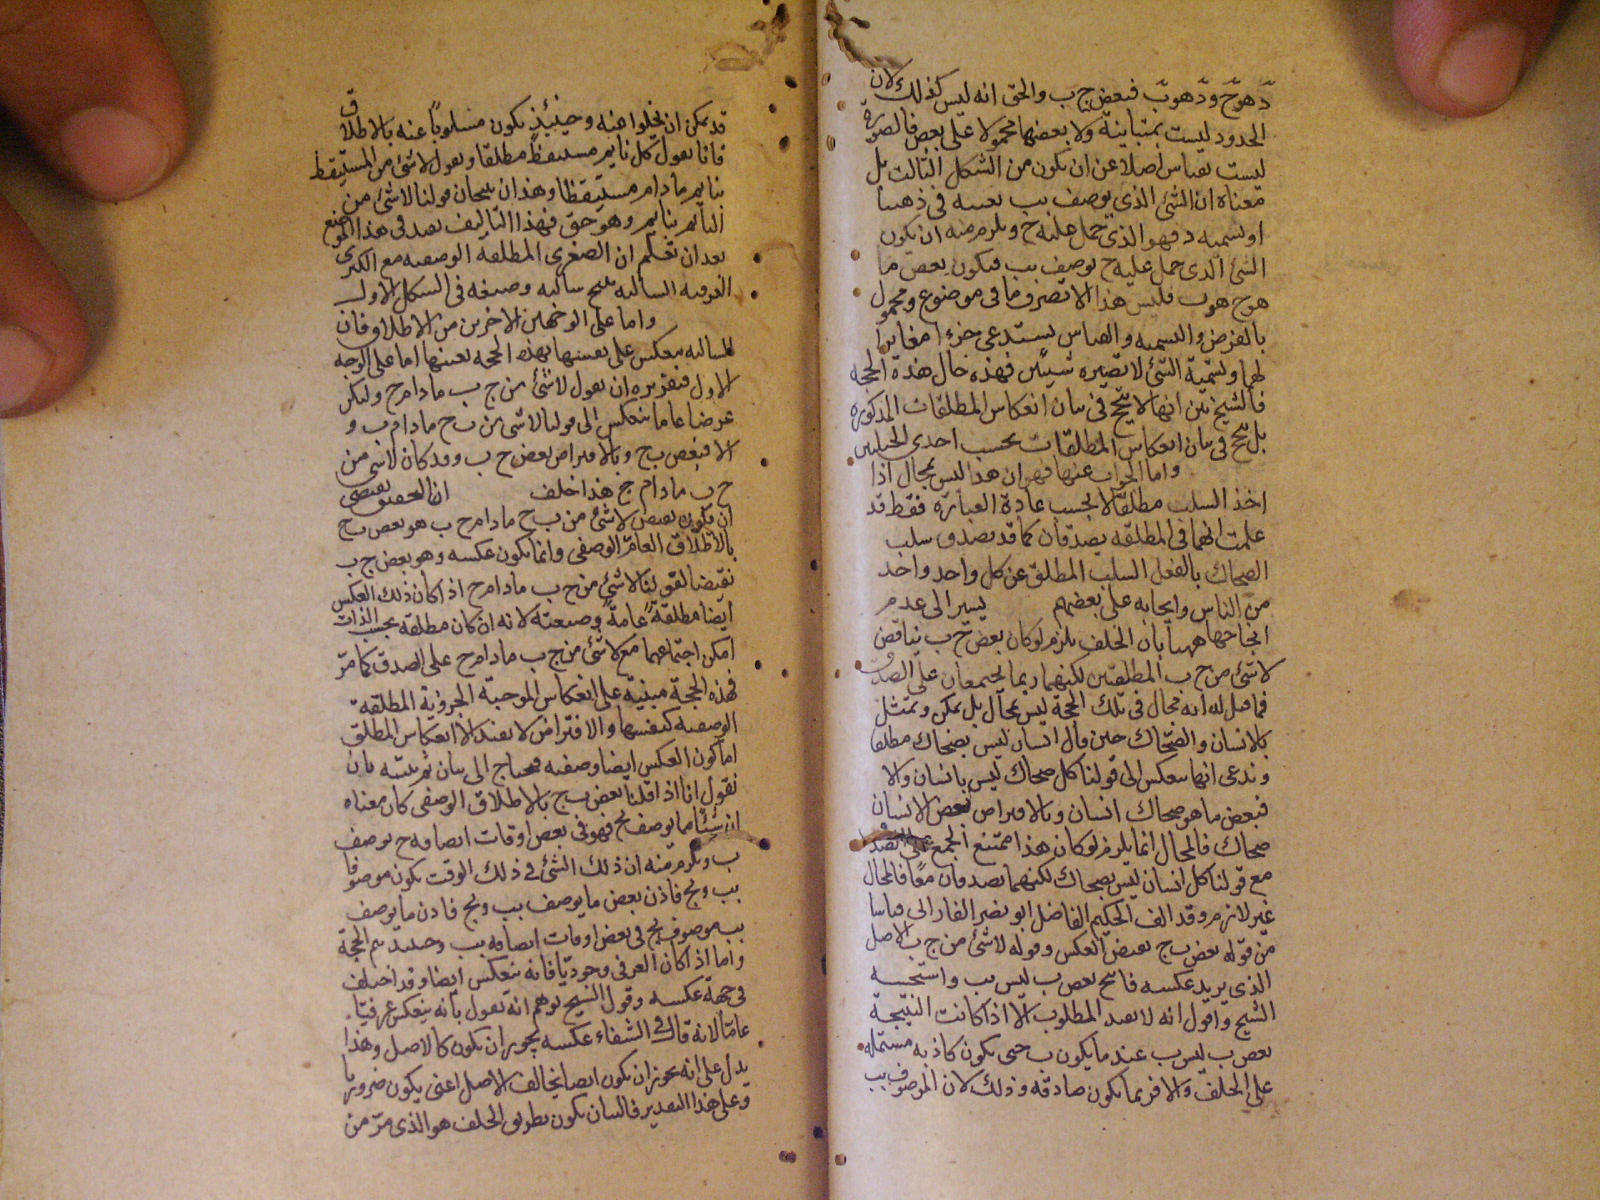 دَ هوجَ ودَ هوبَ فبعض ج ب والحق انه ليس كذلك لان
الحدود ليست بمتباينة ولا بعضها محمولا على بعض فالصورة
ليست بقياس اصلا عن ان يكون من الشكل الثالث بل
معناه ان الشئ الذي يوصف بب نعينه في ذهننا
او نسميه د فهو الذي حمل عليه ج ويلزم منه ان يكون
الشئ الذي حمل عليه ج يوصف بب فيكون بعض ما
هو ج هو ب فليس هذا الا تصرف ما في موضوع ومحمول
بالفرض والتسمية والقياس يستدعي جزءا مغايرا
لهما وتسمية الشئ لا تصيره شيئين فهذه حال هذه الحجة
فالشيخ بين انها لا تنتج في بيان انعكاس المطلقات المذكورة
بل تنتج في بيان انعكاس المطلقات بحسب احدى الحيلتين
واما الجواب عنها فهو ان هذا ليس بمحال اذا
اخذ السلب مطلقا لا بحسب عادة العبارة فقط قد
علمت انهما في المطلقة يصدقان كما قد يصدق سلب
الضحاك بالفعل السلب المطلق عن كل واحد واحد
من الناس وايجابه على بعضهم يشير الى عدم
انجاحها ههنا بان الخلف يلزم لو كان بعض ج ب يناقض
لا شئ من ج ب المطلقتين لكنهما ربما يجتمعان على الصدق
فما قيل له انه محال في تلك الحجة ليس بمحال بل ممكن وتمثل
بالانسان والضحاك حين قال انسان ليس بضحاك مطلقا
وندعي انها تنعكس الى قولنا كل ضحاك ليس بانسان والا
فبعض ما هو ضحاك انسان وبالافتراض فبعض الانسان
ضحاك فالمحال انما يلزم لو كان هذا ممتنع الجمع على الصدق
مع قولنا كل انسان ليس بضحاك لكنهما يصدقان معا فالمحال
غير لازم وقد الف الحكيم الفاضل ابو نصر الفارابي قياسا
من قوله بعض ب ج نقيض العكس وقوله لا شئ من ج ب الاصل
الذي يريد عكسه فانتج بعض ب ليس ب واستحسنه
الشيخ واقول انه لا يفيد المطلوب الا اذا كانت النتيجة
بعض ب ليس ب عندما يكون ب حتى يكون كاذبه مشتملة
على الخلف والا فربما يكون صادقه وذلك لان الموصوف بب
قد يمكن ان يخلوا عنه وحينئذ يكون مسلوبا عنه بالاطلاق
فانا نقول كل نايم مستيقظ مطلقا ونقول لا شئ من المستيقظ
بنايم ما دام مستيقظا وهذان ينتجان قولنا لا شئ من
النائم بنايم وهو حق فهذا التاليف يصدق في هذا الموضع
بعد ان تعلم ان الصغرى المطلقة الوصفية مع الكبرى
العرفية السالبة ينتج سالبة وصفية في الشكل الاول
واما على الوجهين الاخرين من الاطلاق فان
السالبة ينعكس على نفسها بهذه الحجة بعينها اما على الوجه
الاول فتقريره ان يقول لا شئ من ج ب ما دام ج وليكن
عرضا عاما ينعكس الى قولنا لا شئ من ب ج ما دام ب و
الا فبعض ب ج وبالافتراض بعض ج ب وقد كان لا شئ من
ج ب ما دام ج هذا خلف ان التحقيق يقتضي
ان يكون نقيض لا شئ من ب ج ما دام ج ب هو بعض ب ج
بالاطلاق العام الوصفي وانما يكون عكسه وهو بعض ج ب
نقيضا لقولنا لا شئ من ج ب ما دام ج اذا كان ذلك العكس
ايضا مطلقة عامة وصفية لانه ان كان مطلقة بحسب الذات
امكن اجتماعهما مع لا شئ من ج ب ما دام ج على الصدق كما مر
فهذه الحجة مبنية على انعكاس الموجبة الجزوية المطلقة
الوصفية كنفسها والافتراض لا يفيد الا انعكاس المطلق
اما كون العكس ايضا وصفيه فمحتاج الى بيان ثم نبينه بان
نقول انا اذا قلنا بعض ب ج بالاطلاق الوصفي كان معناه
ان شيئا مما يوصف بج فهو في بعض اوقات اتصافه ج يوصف
ب ويلزم منه ان ذلك الشئ في ذلك الوقت يكون موصوفا
بب وبج فاذن بعض ما يوصف بب وبج فاذن ما يوصف
بب موصوف بج في بعض اوقات اتصافه بب وحينئذ يتم الحجة
واما اذا كان العرفي وجوديا فانه ينعكس ايضا وقد اختلف
في جهة عكسه وقول الشيخ يوهم انه يقول بانه ينعكس عرفيا
عاما لانه قال في الشفاء عكسه يجوز ان يكون كالاصل وهذا
يدل على انه يجوز ان يكون ايضا يخالف الاصل اعنى يكون ضروريا
وعلى هذا التقدير فالبيان يكون بطريق الخلف هو الذي مر من